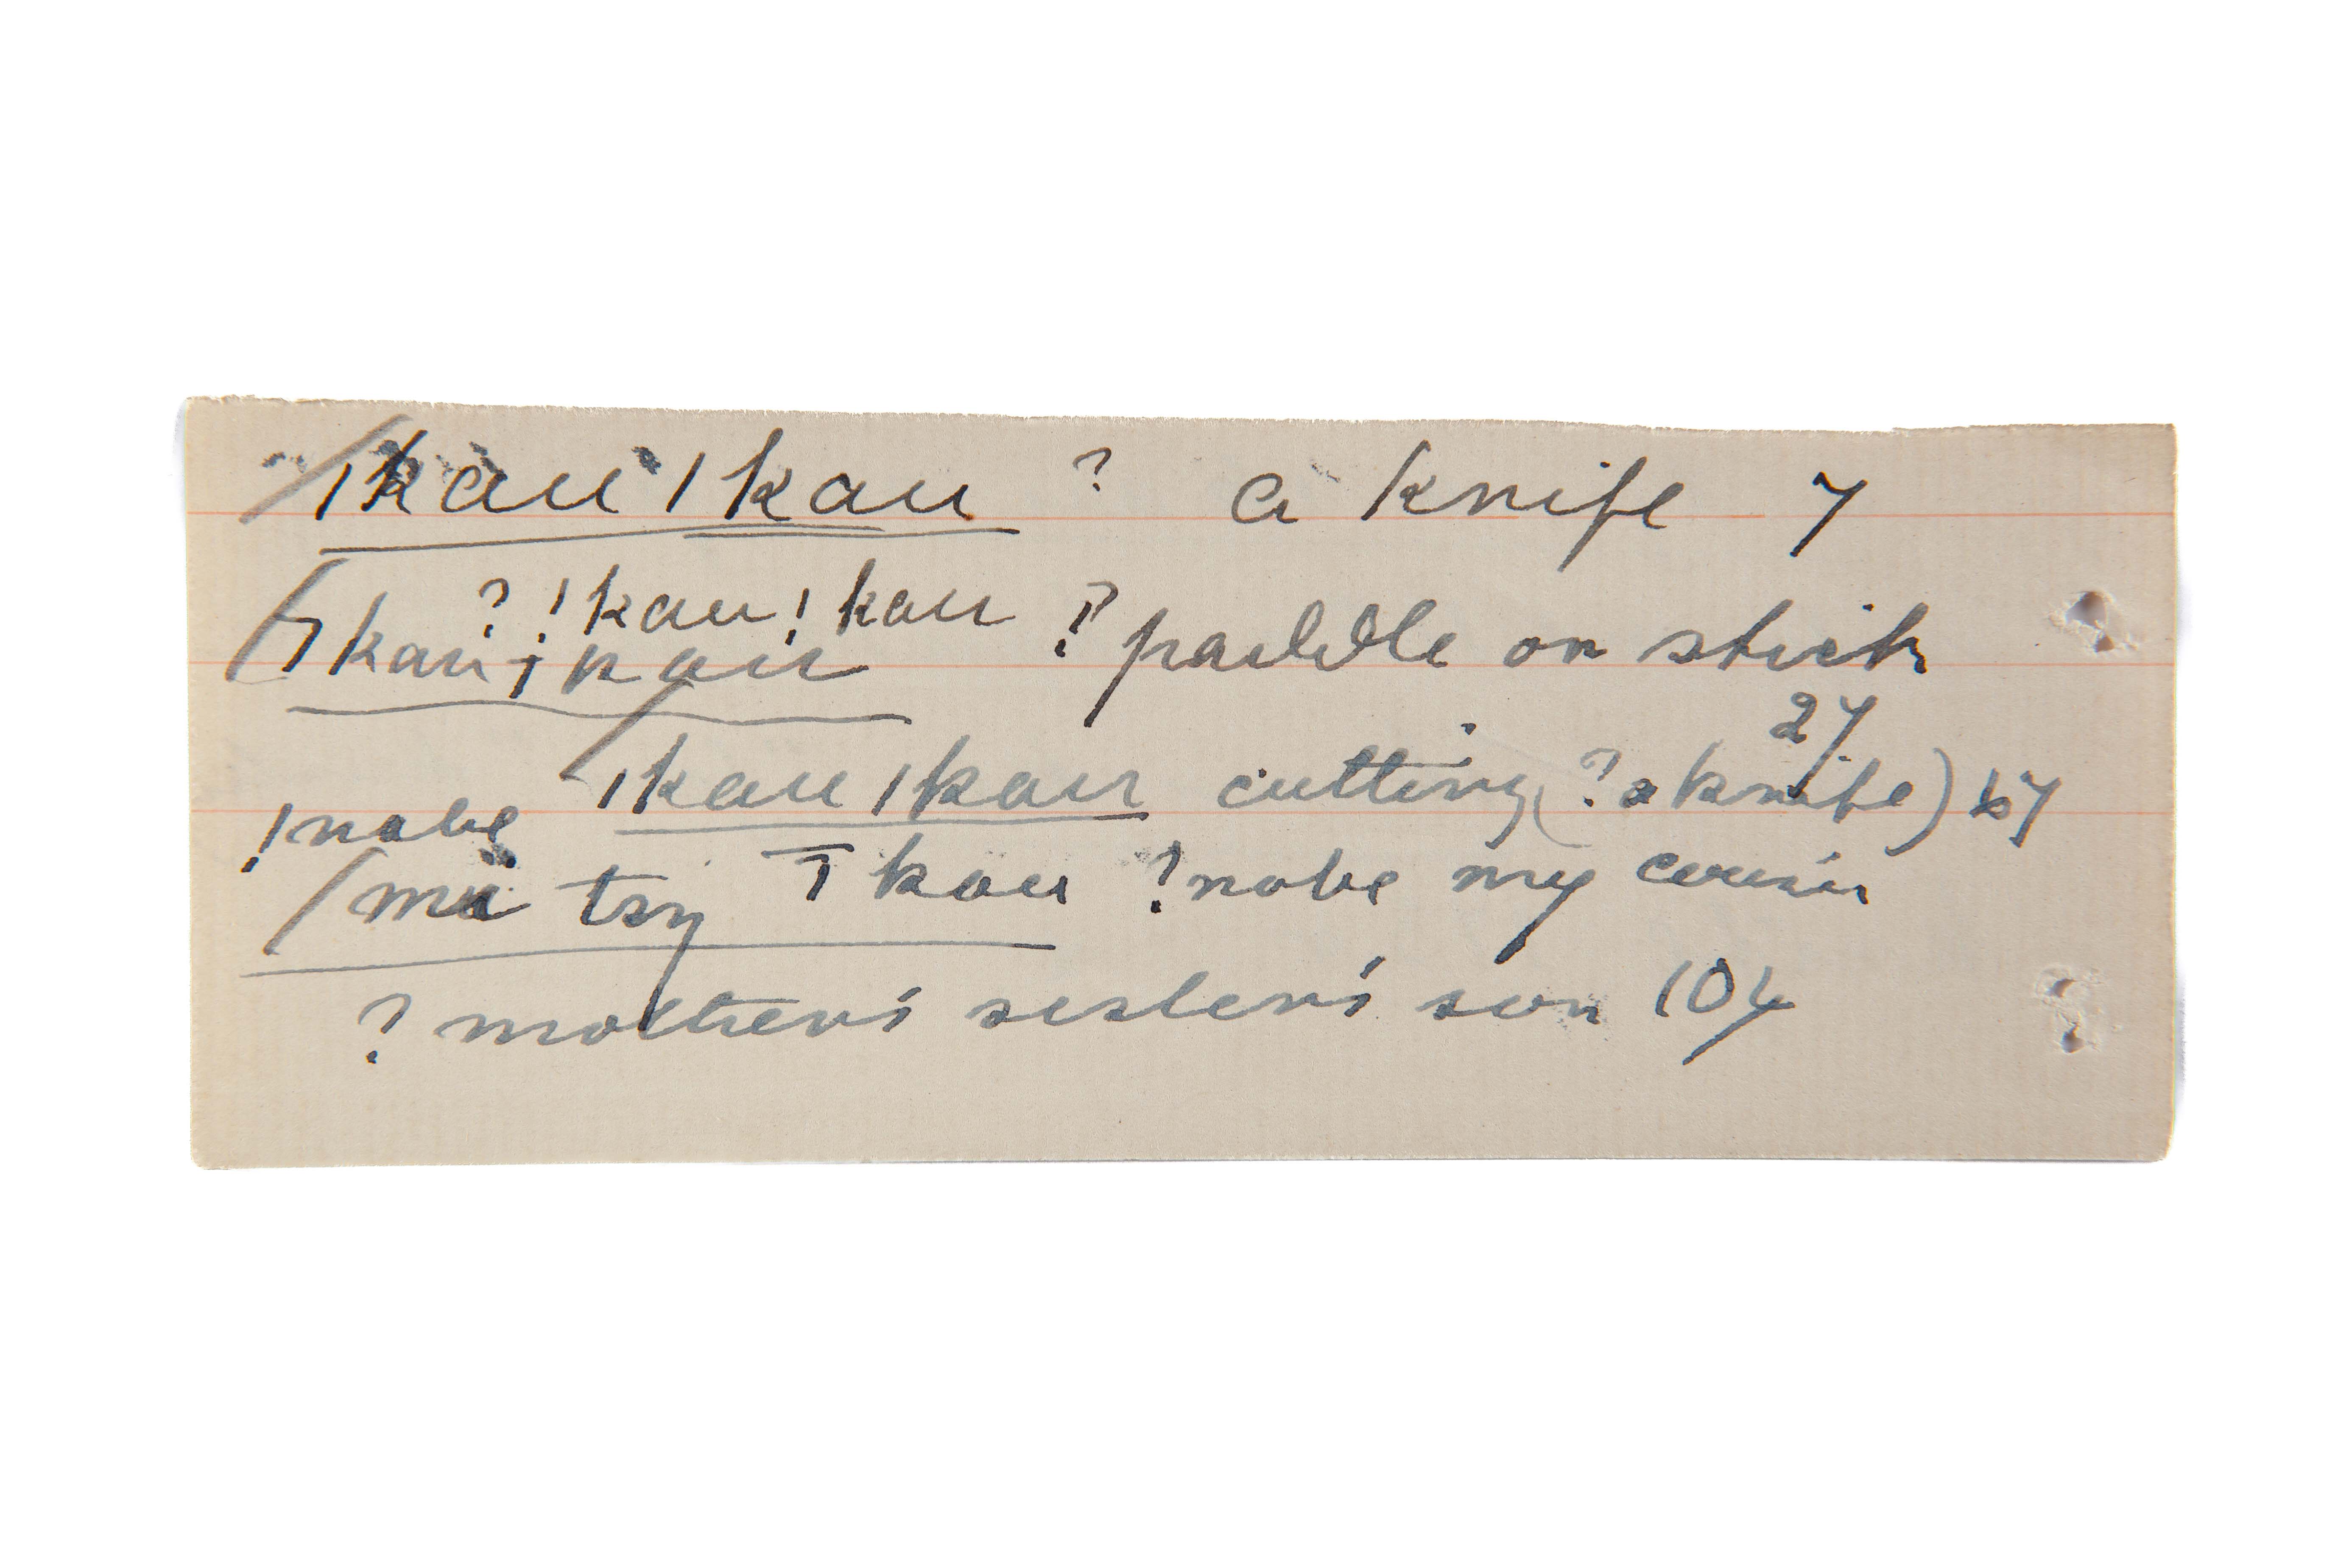 /ǀkau ǀkau ? a knife 7
? !kau !kau
ꞁkau ¡kau ? paddle on stick
27
ǀkau ǀkau cutting (? a knife) 67
!nobe
/mu tsy ꞁkau ?nobe my cousin
? mother's sister's son 104